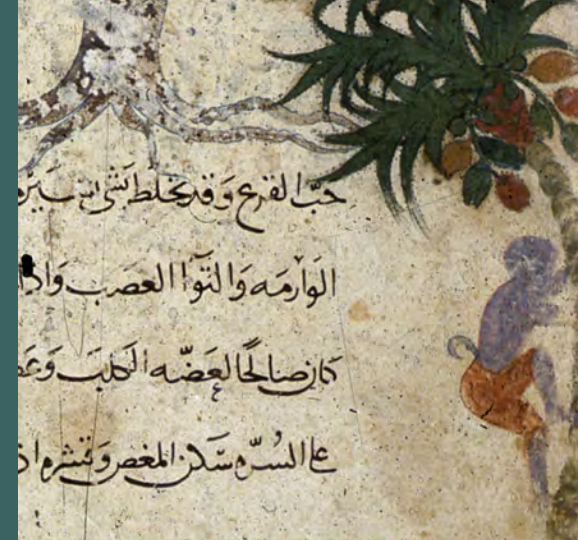 حبّ القرع وَقد يخلط بشى من
الوَارمَه وَالتوَا العصَب وَاذا
كان صَالحًا لعَضّه الكلبَ وَعَضـ
على السُرّه سَكن المغص وَقشره اذ